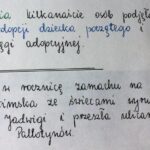 ia kilkanaście osób podję
dopcji dziecka poczętego i
ęgi adopcyjnej.
w rocznicę zamachu na
ymska ze świecami
Jadwigi i przeszła ulica
Pallotynów.